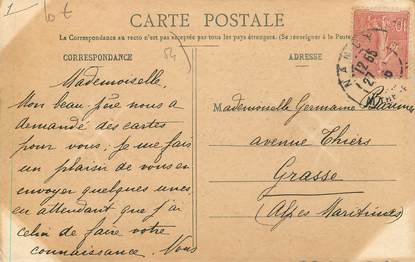 1
CARTE POSTALE
La Correspondance au recto n'est pas acceptée par tous les pays étrangers. (Se renseigner à la Poste)
CORRESPONDANCE
ADRESSE
Mademoiselle,
Mon beau-père nous a
demandé des cartes
pour vous; je me fais
un plaisir de vous en
envoyer quelques unes,
en attendant que j'ai
celui de faire votre
connaissance. Vous
Mademoiselle Germaine
avenue Thiers
Grasse
(Alpes Maritimes)